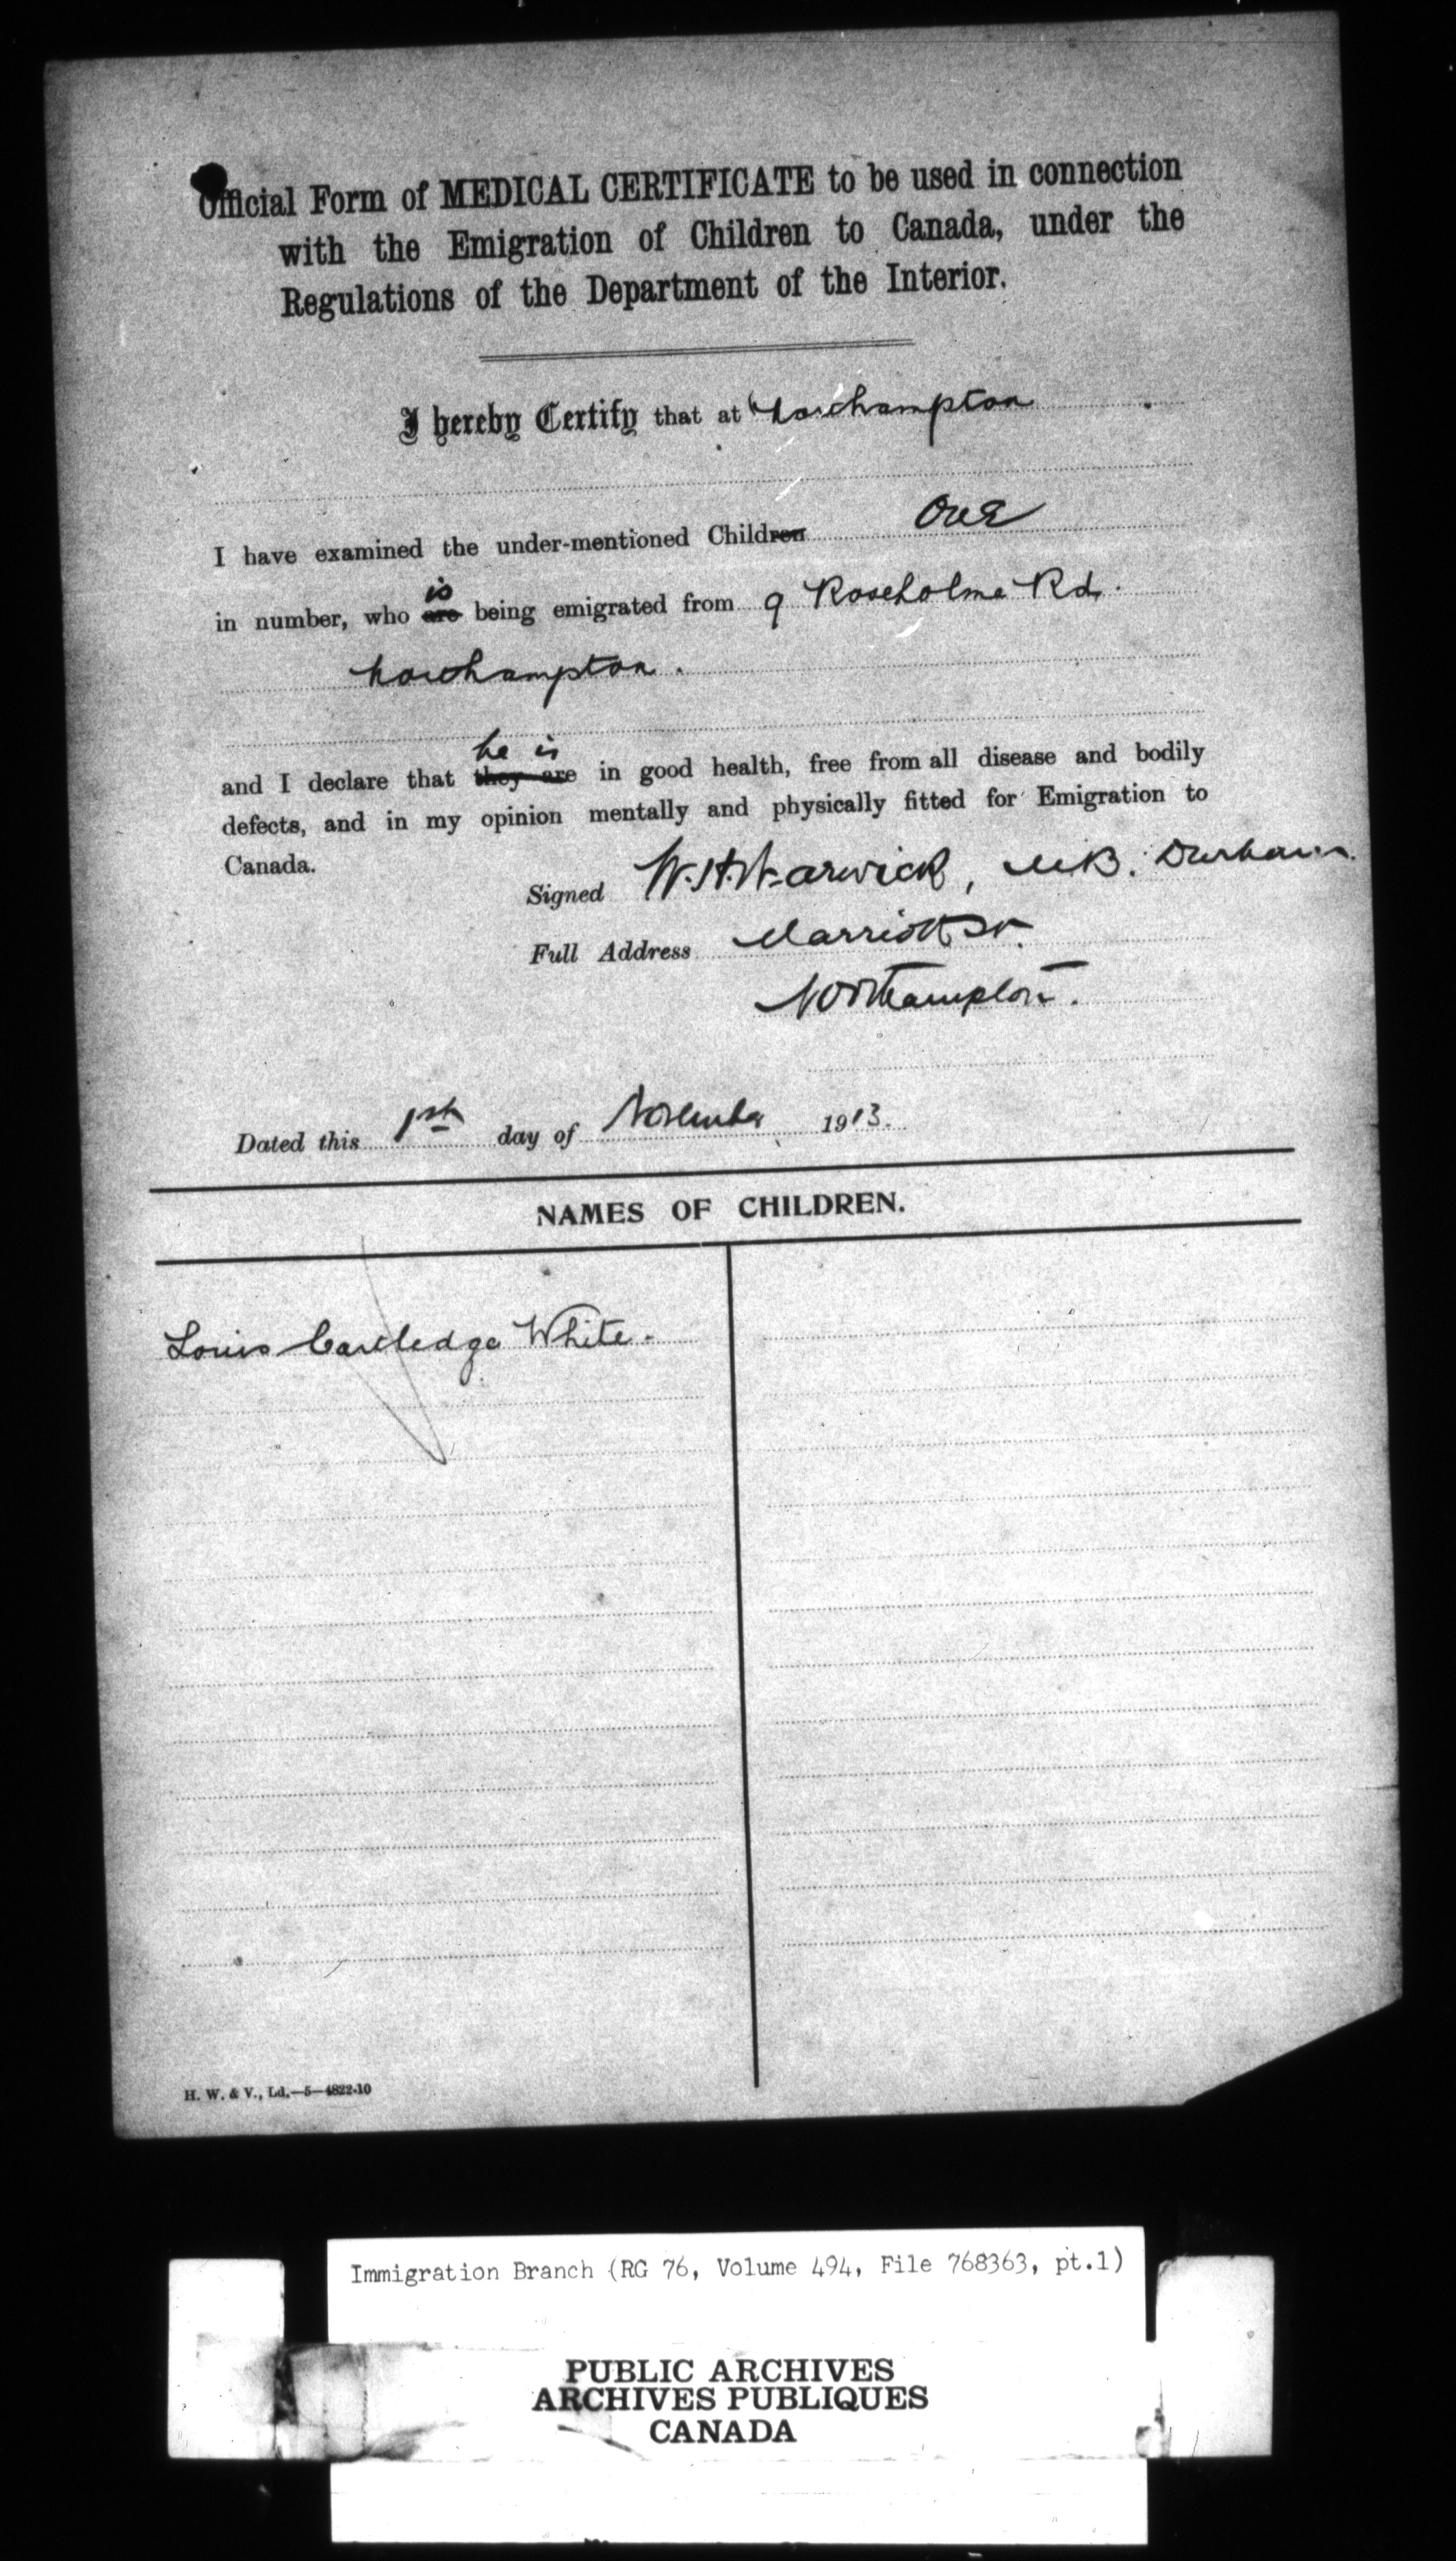 Official Form of MEDICAL CERTIFICATE to be used in connection
with the Emigration of Children to Canada, under the
Regulations of the Department of the Interior.
I hereby Certify that at Northampton
I have examined the under-mentioned Children One
is
in number, who are being emigrated from 9 Roseholme Rd.
Northampton.
he is
and I declare that they are in good health, free from all disease and bodily
defects, and in my opinion mentally and physically fitted for Emigration to
Canada.
Signed W. H. Warwick, M.B. Durham.
Full Address Marriott St.
Northampton.
Dated this 1st day of November 1913.
NAMES OF CHILDREN.
Louis Cartledge White.
H. W. & V., Ld.—5—4822-10
Immigration Branch (RG 76, Volume 494, File 768363, pt.1)
PUBLIC ARCHIVES
ARCHIVES PUBLIQUES
CANADA